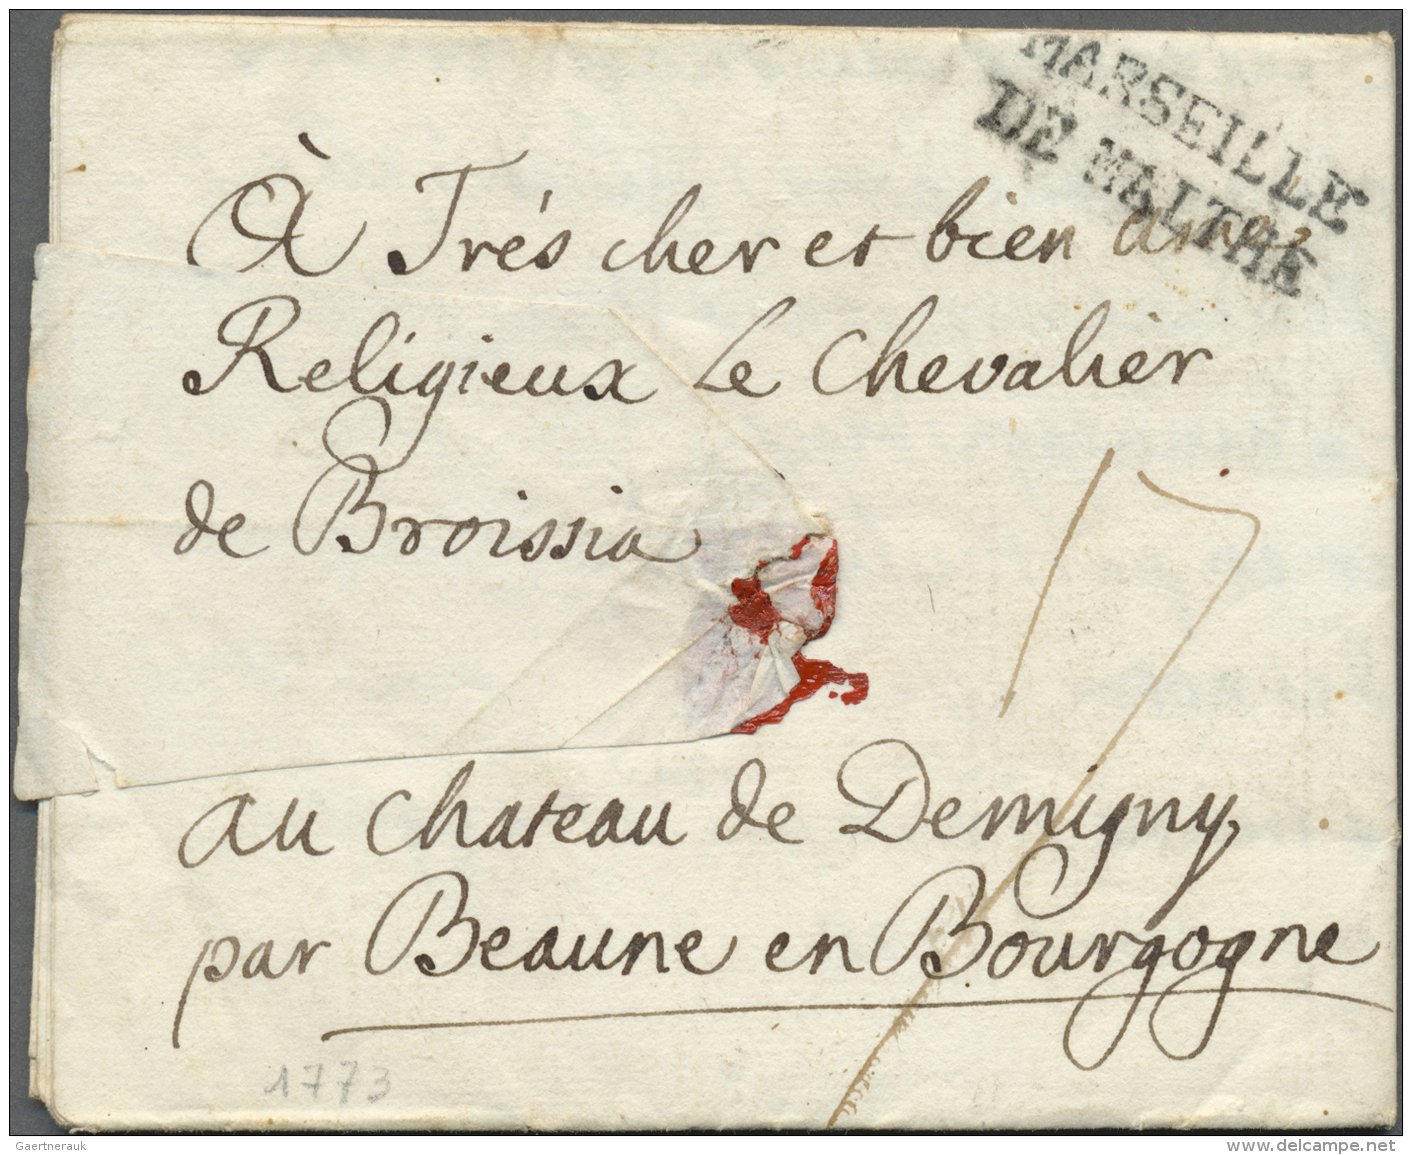 MARSEILLE
DE MALTHE
À Trés cher et bien amé
Religieux Le Chevalier
de Broissia
17
au Chateau de Demigny,
par Beaune en Bourgogne
1773
Gaertnerauk
www.delcampe.net